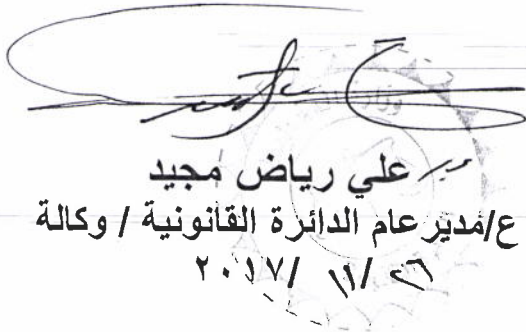 علي رياض مجيد
ع/مدير عام الدائرة القانونية / وكالة
٢٠١٧/ ١١/ ٢٦